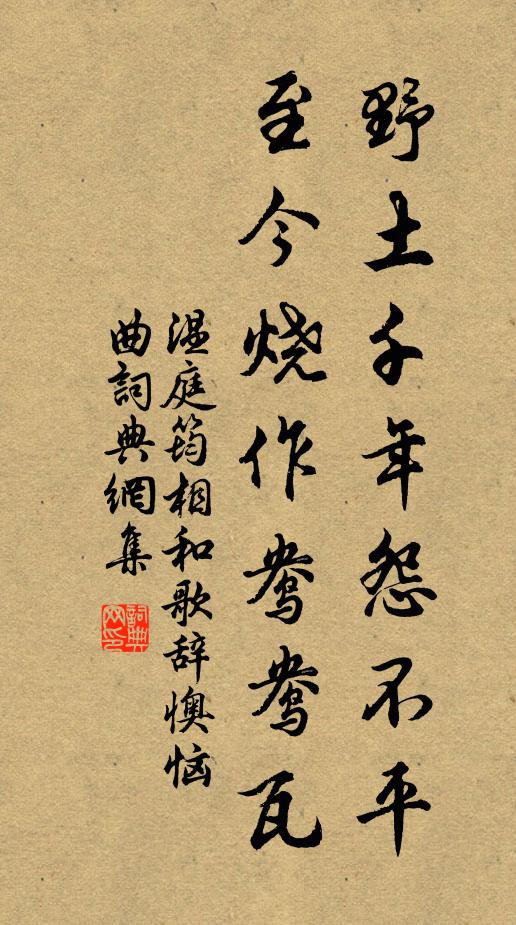 野土千年怨不平
至今烧作鸯鸯瓦
温庭筠相和歌辞懊恼
曲詞典網集
詞典
网印